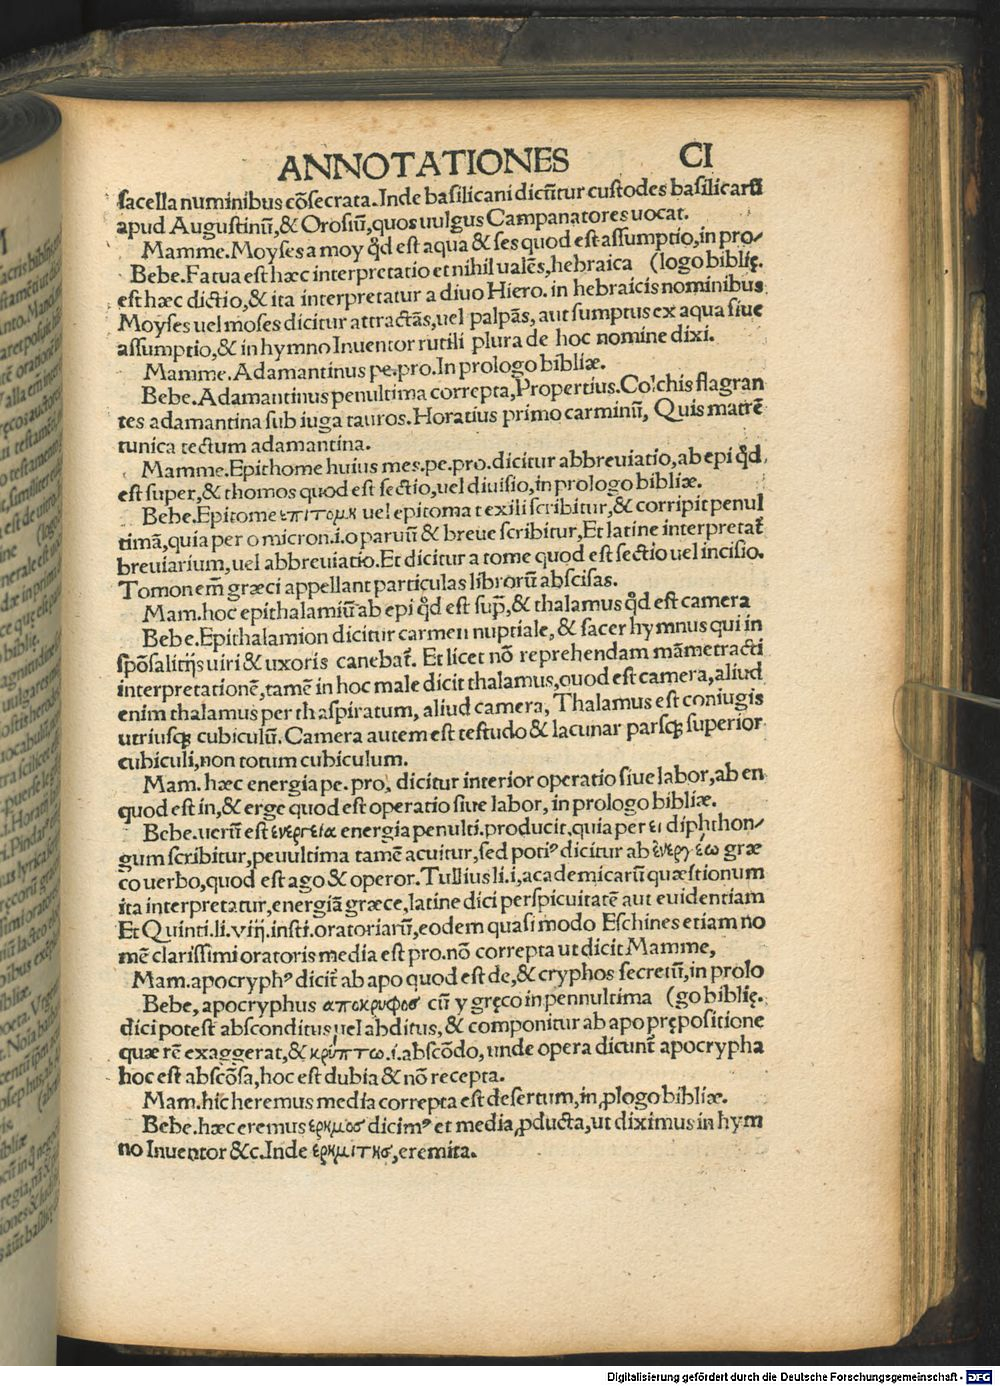 ANNOTATIONES CI
sacella numinibus cõsecrata. Inde basilicani dicũtur custodes basilicarũ
apud Augustinũ,& Orosiũ,quos uulgus Campanatores uocat.
Mamme.Moyses a moy qđ est aqua & ses quod est assumptio,in pro-
Bebe.Fatua est hæc interpretatio et nihil ualẽs,hebraica (logo biblię.
est hæc dictio,& ita interpretatur a diuo Hiero. in hebraicis nominibus
Moyses uel moses dicitur attractãs,uel palpãs, aut sumptus ex aqua siue
assumptio,& in hymno Inuentor rutili plura de hoc nomine dixi.
Mamme.Adamantinus pe.pro.In prologo bibliæ.
Bebe.Adamantinus penultima correpta,Propertius.Colchis flagran
tes adamantina sub iuga tauros.Horatius primo carminũ, Quis matrẽ
tunica tectum adamantina.
Mamme.Epithome huius mes.pe.pro.dicitur abbreuiatio,ab epi qđ
est super,& thomos quod est sectio,uel diuisio,in prologo bibliæ.
Bebe.Epitome επιτομη uel epitoma t exili scribitur,& corripit penul
timã,quia per o micron.i.o paruũ & breue scribitur,Et latine interpretat̃
breuiarium,uel abbreuiatio.Et dicitur a tome quod est sectio uel incisio.
Tomon em̃ græci appellant particulas librorũ abscisas.
Mam.hoc epithalamiũ ab epi qđ est sup̃,& thalamus qđ est camera
Bebe.Epithalamion dicitur carmen nuptiale, & sacer hymnus qui in
spõsalitijs uiri & uxoris canebat̃. Et licet nõ reprehendam mãmetracti
interpretationẽ,tamẽ in hoc male dicit thalamus,quod est camera,aliud
enim thalamus per th aspiratum, aliud camera, Thalamus est coniugis
utriusq; cubiculũ. Camera autem est testudo & lacunar parsq; superior
cubiculi,non totum cubiculum.
Mam. hæc energia pe. pro, dicitur interior operatio siue labor,ab en
quod est in,& erge quod est operatio siue labor, in prologo bibliæ.
Bebe.uerũ est ἐνεργεία energia penulti.producit,quia per ει diphthon-
gum scribitur,peuultima tamẽ acuitur,sed poti⁹ dicitur ab ἐνεργέω græ
co uerbo,quod est ago & operor.Tullius li.i,academicarũ quæstionum
ita interpretatur,energiã græce,latine dici perspicuitatẽ aut euidentiam
Et Quinti.li.viij.insti.oratoriarũ,eodem quasi modo Eschines etiam no
mẽ clarissimi oratoris media est pro.nõ correpta ut dicit Mamme,
Mam.apocryph⁹ dicit̃ ab apo quod est de,& cryphos secretũ,in prolo
Bebe,apocryphus αποκρυφοσ cũ y gręco in pennultima (go biblię.
dici potest absconditus uel abditus, & componitur ab apo prępositione
quæ rẽ exaggerat,& κρύπτω.i.abscõdo, unde opera dicunt̃ apocrypha
hoc est abscõsa,hoc est dubia & nõ recepta.
Mam.hic heremus media correpta est desertum,in ꝓlogo bibliæ.
Bebe.hæc eremus ερημοσ dicim⁹ et media ꝓducta,ut diximus in hym
no Inuentor &c.Inde ερημιτησ,eremita.
Digitalisierung gefördert durch die Deutsche Forschungsgemeinschaft - DFG